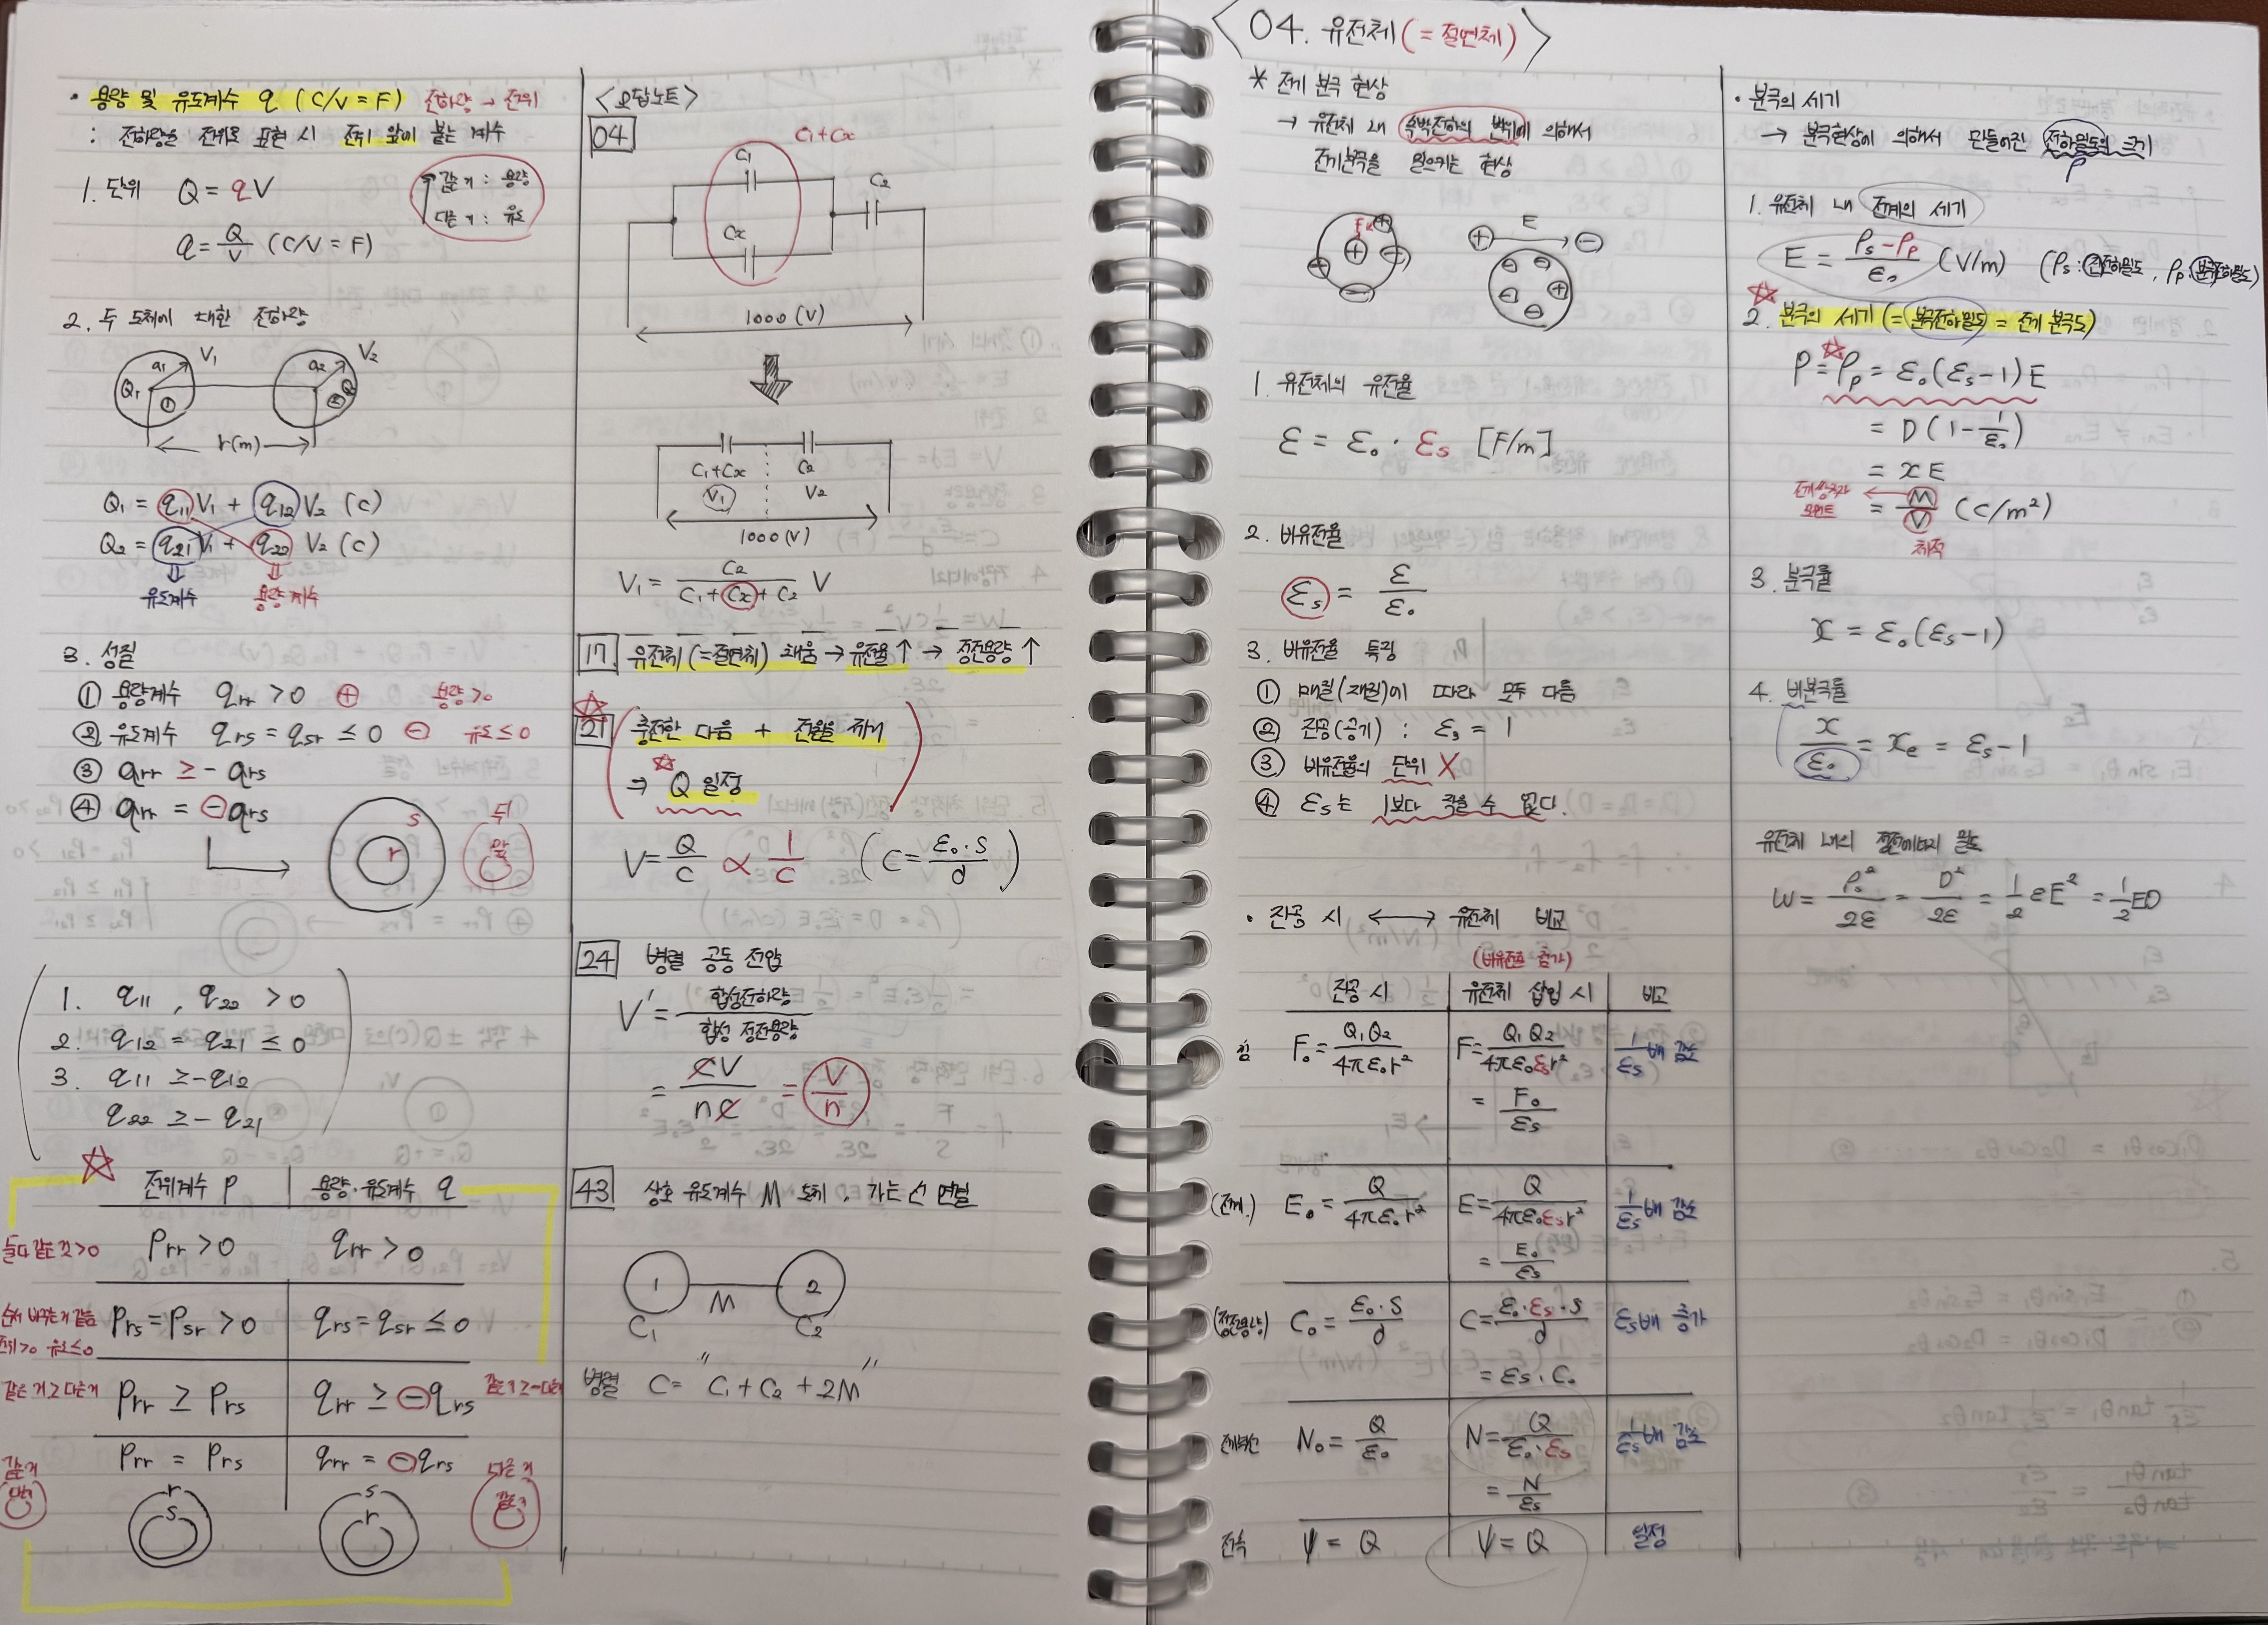 • 용량 및 유도계수 q (C/V = F) 전하량 → 전위
: 전하량을 전위로 표현 시 전위 앞에 붙는 계수
1. 단위 Q = qV
같은거 : 용량
다른거 : 유도
q = Q/V (C/V = F)
2. 두 도체에 대한 전하량
Q₁ a₁ V₁ ①
a₂ V₂
r(m)
Q₁ = q₁₁V₁ + q₁₂V₂ (C)
Q₂ = q₂₁V₁ + q₂₂V₂ (C)
유도계수 용량계수
3. 성질
① 용량계수 qrr > 0 ⊕ 용량>0
② 유도계수 qrs = qsr ≤ 0 ⊖ 유도≤0
③ qrr ≥ - qrs
④ qrr = ⊖qrs
s
r
1. q₁₁ , q₂₂ > 0
2. q₁₂ = q₂₁ ≤ 0
3. q₁₁ ≥ -q₁₂
q₂₂ ≥ - q₂₁
☆ 전위계수 P | 용량·유도계수 q
둘다 같은 것>0 Prr > 0 | qrr > 0
Prs = Psr > 0 | qrs = qsr ≤ 0
같은거 ≥ 다른거 Prr ≥ Prs | qrr ≥ ⊖qrs
Prr = Prs | qrr = ⊖qrs
r s
s r
<오답노트>
04
C₁+Cx
C₁
C₂
Cx
1000 (V)
C₁+Cx C₂
V₁ V₂
1000 (V)
V₁ = C₂/(C₁ + Cx + C₂) V
17 유전체(=절연체) 채움 → 유전율↑ → 정전용량↑
☆ 21 충전한 다음 + 전원을 제거
⇒ ☆ Q 일정
V = Q/C ∝ 1/C (C = ε₀·S/d)
24 병렬 공동 전압
V' = 합성전하량/합성 정전용량
= CV/nC = V/n
43 상호 유도계수 M 도체, 가는 선 연결
1 M 2
C₁ C₂
병렬 C = "C₁ + C₂ + 2M"
<04. 유전체(=절연체)>
* 전기 분극 현상
→ 유전체 내 속박전하의 변위에 의해서
전기분극을 일으키는 현상
E
1. 유전체의 유전율
ε = ε₀ · εs [F/m]
2. 비유전율
εs = ε/ε₀
3. 비유전율 특징
① 매질(재질)에 따라 모두 다름
② 진공(공기) : εs = 1
③ 비유전율의 단위 X
④ εs는 1보다 작을 수 없다.
• 진공 시 ↔ 유전체 비교
(비유전율 증가)
진공 시 | 유전체 삽입 시 | 비고
힘 F₀ = Q₁Q₂/4πε₀r² | F = Q₁Q₂/4πε₀εsr² | 1/εs배 감소
= F₀/εs
(전계) E₀ = Q/4πε₀r² | E = Q/4πε₀εsr² | 1/εs배 감소
= E₀/εs
(정전용량) C₀ = ε₀·S/d | C = ε₀·εs·S/d | εs배 증가
= εs · C₀
전기력선 N₀ = Q/ε₀ | N = Q/ε₀·εs | 1/εs배 감소
= N/εs
전속 ψ = Q | ψ = Q | 일정
• 분극의 세기
→ 분극현상에 의해서 만들어진 전하밀도의 크기
P
1. 유전체 내 전계의 세기
E = (ρs - ρp)/ε₀ (V/m) (ρs : 진전하밀도, ρp : 분극전하밀도)
☆
2. 분극의 세기(= 분극전하밀도 = 전기 분극도)
P = ρp = ε₀(εs-1)E
= D(1 - 1/ε₀)
= xE
= M/V (C/m²)
전기쌍극자
모멘트
체적
3. 분극률
x = ε₀(εs-1)
4. 비분극률
x/ε₀ = xe = εs - 1
유전체 내의 정전에너지 밀도
W = ρs²/2ε = D²/2ε = 1/2 εE² = 1/2 ED